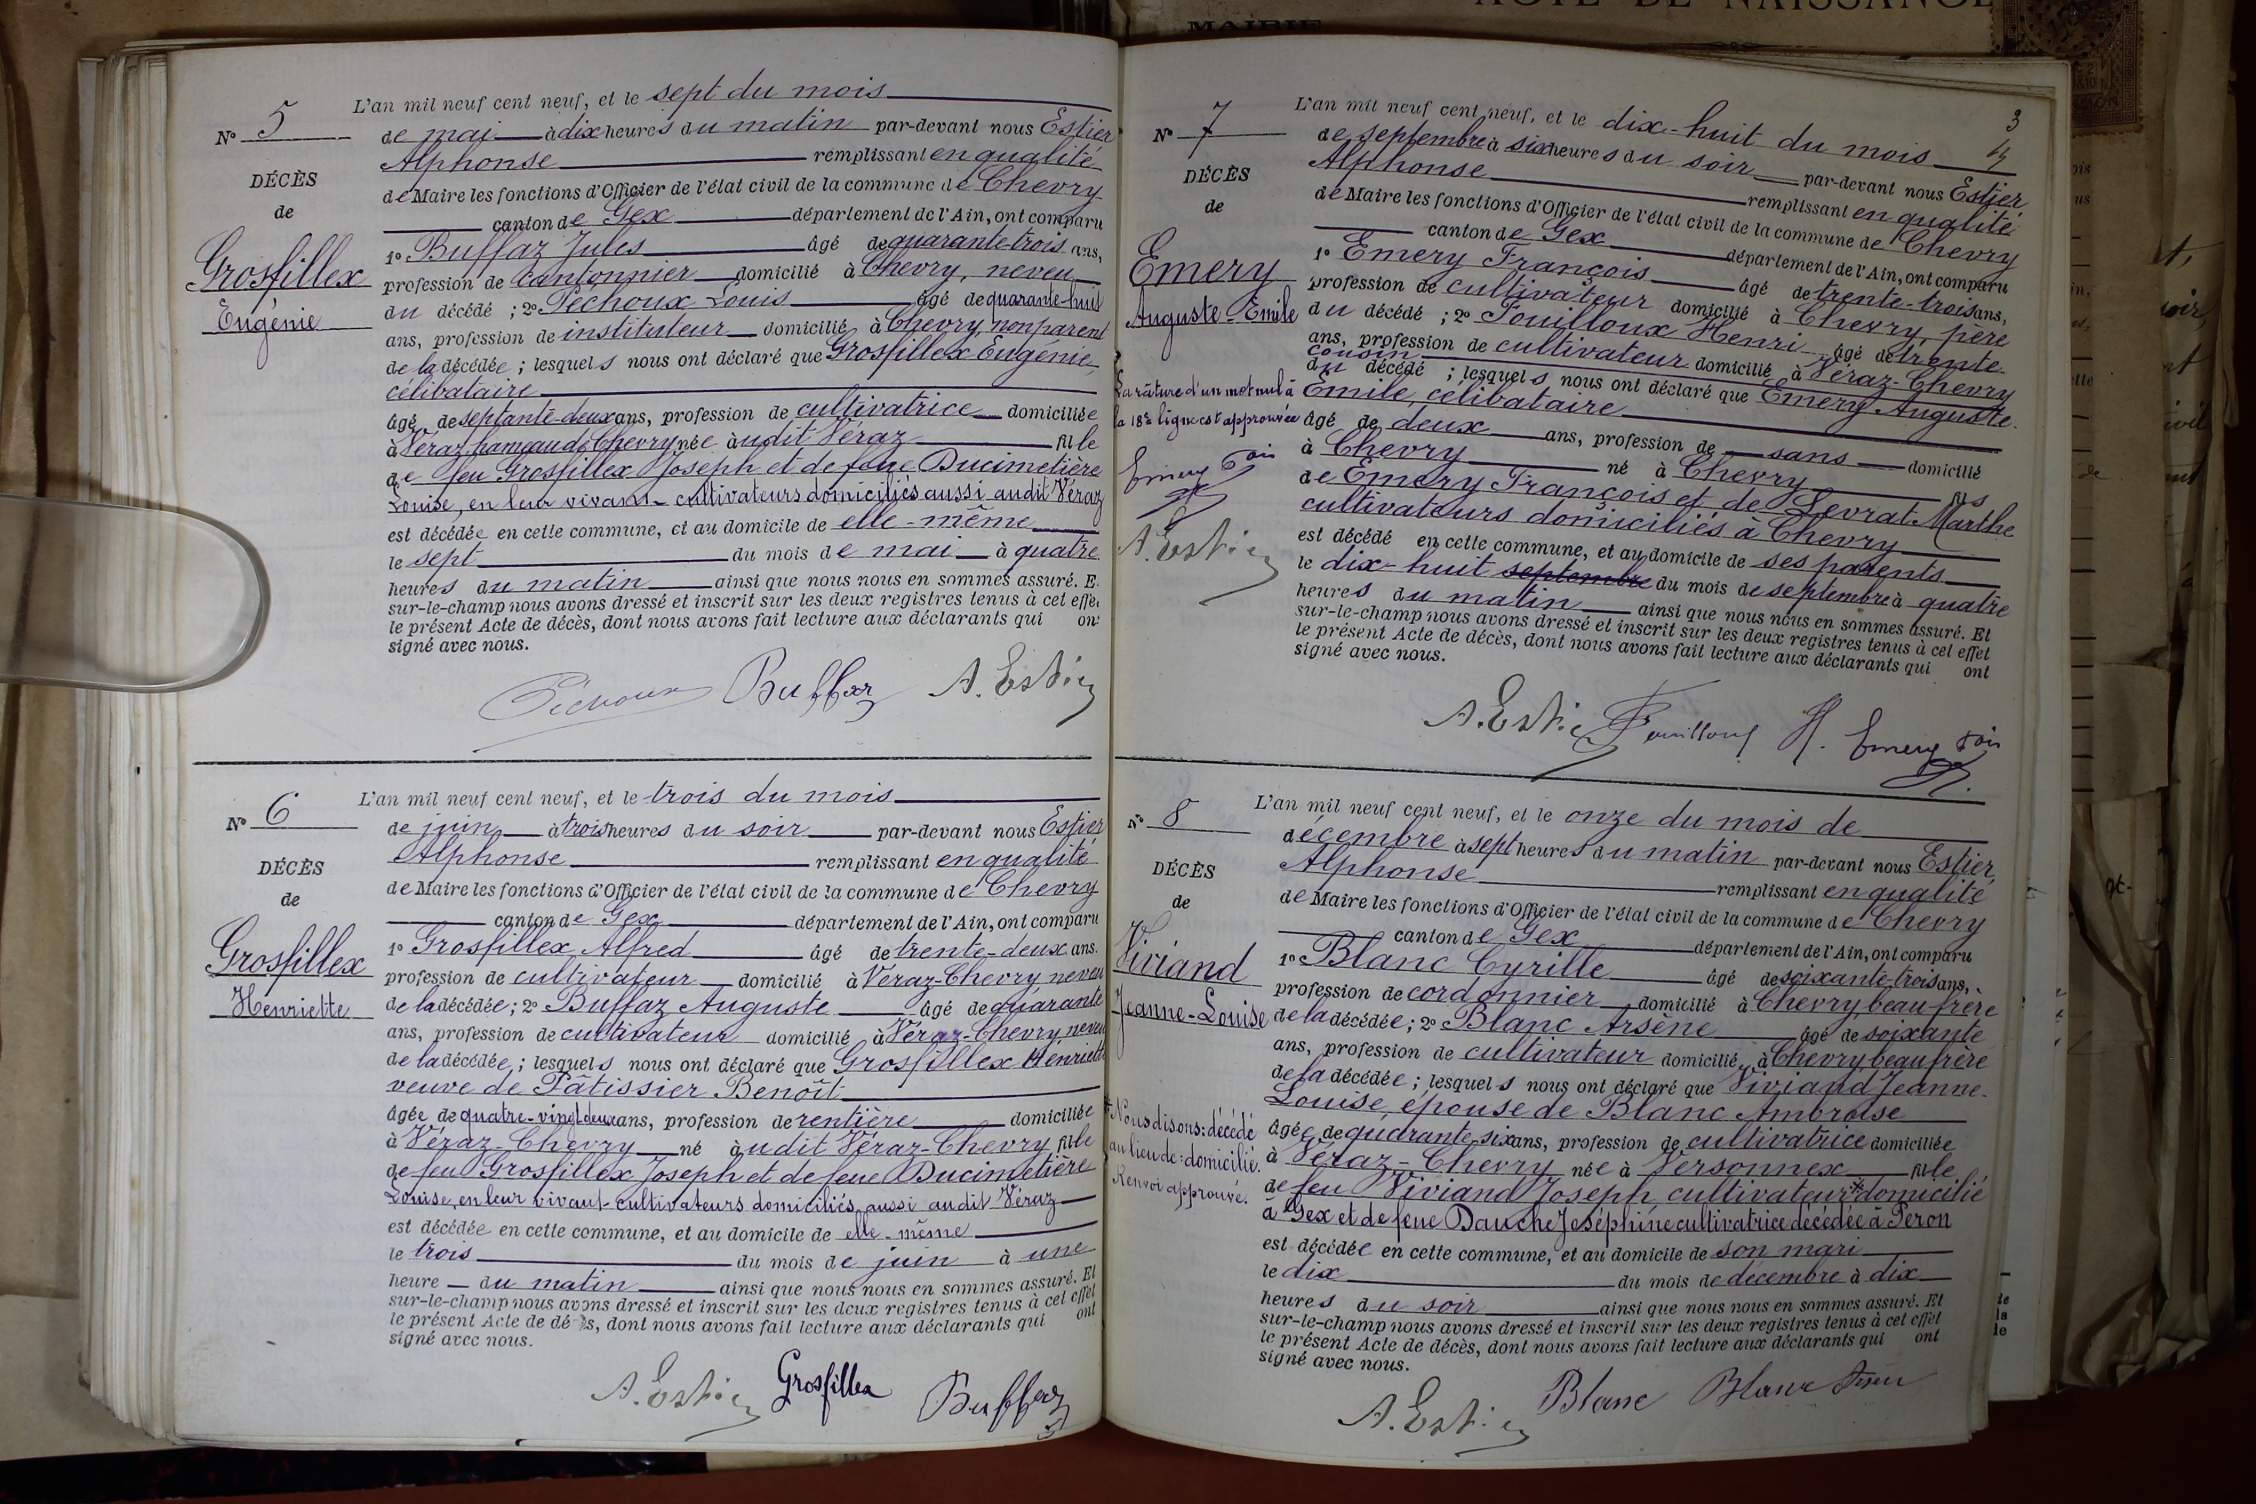 MAIRIE
ACTE DE NAISSANCE
N° 5
DÉCÈS
de
Grosfillex
Eugénie
L'an mil neuf cent neuf, et le sept du mois
de mai à dix heures du matin par-devant nous Estier
Alphonse remplissant en qualité
de Maire les fonctions d'Officier de l'état civil de la commune de Chevry
canton de Gex département de l'Ain, ont comparu
1° Buffaz Jules âgé de quarante trois ans,
profession de cantonnier domicilié à Chevry, neveu
du décédé ; 2° Péchoux Louis âgé de quarante-huit
ans, profession de instituteur domicilié à Chevry, non parent
de la décédée ; lesquels nous ont déclaré que Grosfillex Eugénie,
célibataire
âgé de septante-deux ans, profession de cultivatrice domiciliée
à Véraz, hameau de Chevry née audit Véraz fille
de feu Grosfillex Joseph et de feue Ducimetière
Louise, en leur vivant cultivateurs domiciliés aussi audit Véraz
est décédée en cette commune, et au domicile de elle-même
le sept du mois de mai à quatre
heures du matin ainsi que nous nous en sommes assuré. E
sur-le-champ nous avons dressé et inscrit sur les deux registres tenus à cet effe
le présent Acte de décès, dont nous avons fait lecture aux déclarants qui on
signé avec nous.
Péchoux Buffaz A. Estier
N° 6
DÉCÈS
de
Grosfillex
Henriette
L'an mil neuf cent neuf, et le trois du mois
de juin à trois heures du soir par-devant nous Estier
Alphonse remplissant en qualité
de Maire les fonctions d'Officier de l'état civil de la commune de Chevry
canton de Gex département de l'Ain, ont comparu
1° Grosfillex Alfred âgé de trente-deux ans.
profession de cultivateur domicilié à Véraz-Chevry neveu
de la décédée ; 2° Buffaz Auguste âgé de quarante
ans, profession de cultivateur domicilié à Véraz-Chevry, neveu
de la décédée ; lesquels nous ont déclaré que Grosfillex Henriette
veuve de Pâtissier Benoît
âgée de quatre-vingt deux ans, profession de rentière domiciliée
à Véraz-Chevry né audit Véraz-Chevry fille
de feu Grosfillex Joseph et de feue Ducimetière
Louise, en leur vivant cultivateurs domiciliés aussi audit Véraz
est décédée en cette commune, et au domicile de elle-même
le trois du mois de juin à une
heure du matin ainsi que nous nous en sommes assuré. Et
sur-le-champ nous avons dressé et inscrit sur les deux registres tenus à cet effet
le présent Acte de décès, dont nous avons fait lecture aux déclarants qui ont
signé avec nous.
A. Estier Grosfillex Buffaz
3
N° 7
DÉCÈS
de
Emery
Auguste-Emile
La râture d'un mot nul à
la 18e ligne est approuvée
Emery Fois
A. Estier
L'an mil neuf cent neuf, et le dix-huit du mois
de septembre à six heures du soir par-devant nous Estier
Alphonse remplissant en qualité
de Maire les fonctions d'Officier de l'état civil de la commune de Chevry
canton de Gex département de l'Ain, ont comparu
1° Emery François âgé de trente-trois ans,
profession de cultivateur domicilié à Chevry, père
du décédé ; 2° Fouilloux Henri âgé de trente
ans, profession de cultivateur domicilié à Véraz-Chevry
cousin
du décédé ; lesquels nous ont déclaré que Emery Auguste
Emile, célibataire
âgé de deux ans, profession de sans domicilié
à Chevry né à Chevry fils
de Emery François et de Levrat Marthe
cultivateurs domiciliés à Chevry
est décédé en cette commune, et au domicile de ses parents
le dix-huit septembre du mois de septembre à quatre
heures du matin ainsi que nous nous en sommes assuré. Et
sur-le-champ nous avons dressé et inscrit sur les deux registres tenus à cet effet
le présent Acte de décès, dont nous avons fait lecture aux déclarants qui ont
signé avec nous.
A. Estier Fouilloux H. Emery Fois
N° 8
DÉCÈS
de
Viviand
Jeanne-Louise
* Nous disons: décédé
au lieu de: domicilié.
Renvoi approuvé.
L'an mil neuf cent neuf, et le onze du mois de
décembre à sept heures du matin par-devant nous Estier,
Alphonse remplissant en qualité
de Maire les fonctions d'Officier de l'état civil de la commune de Chevry
canton de Gex département de l'Ain, ont comparu
1° Blanc Cyrille âgé de soixante-trois ans,
profession de cordonnier domicilié à Chevry beau frère
de la décédée ; 2° Blanc Arsène âgé de soixante
ans, profession de cultivateur domicilié à Chevry beau frère
de la décédée ; lesquels nous ont déclaré que Viviand Jeanne-
Louise, épouse de Blanc Ambroise
âgée de quarante six ans, profession de cultivatrice domiciliée
à Véraz-Chevry née à Versonnex fille
de feu Viviand Joseph, cultivateur * domicilié
à Gex et de feue Dauche Joséphine cultivatrice décédée à Péron
est décédée en cette commune, et au domicile de son mari
le dix du mois de décembre à dix
heures du soir ainsi que nous nous en sommes assuré. Et
sur-le-champ nous avons dressé et inscrit sur les deux registres tenus à cet effet
le présent Acte de décès, dont nous avons fait lecture aux déclarants qui ont
signé avec nous.
A. Estier Blanc Blanc Arsène